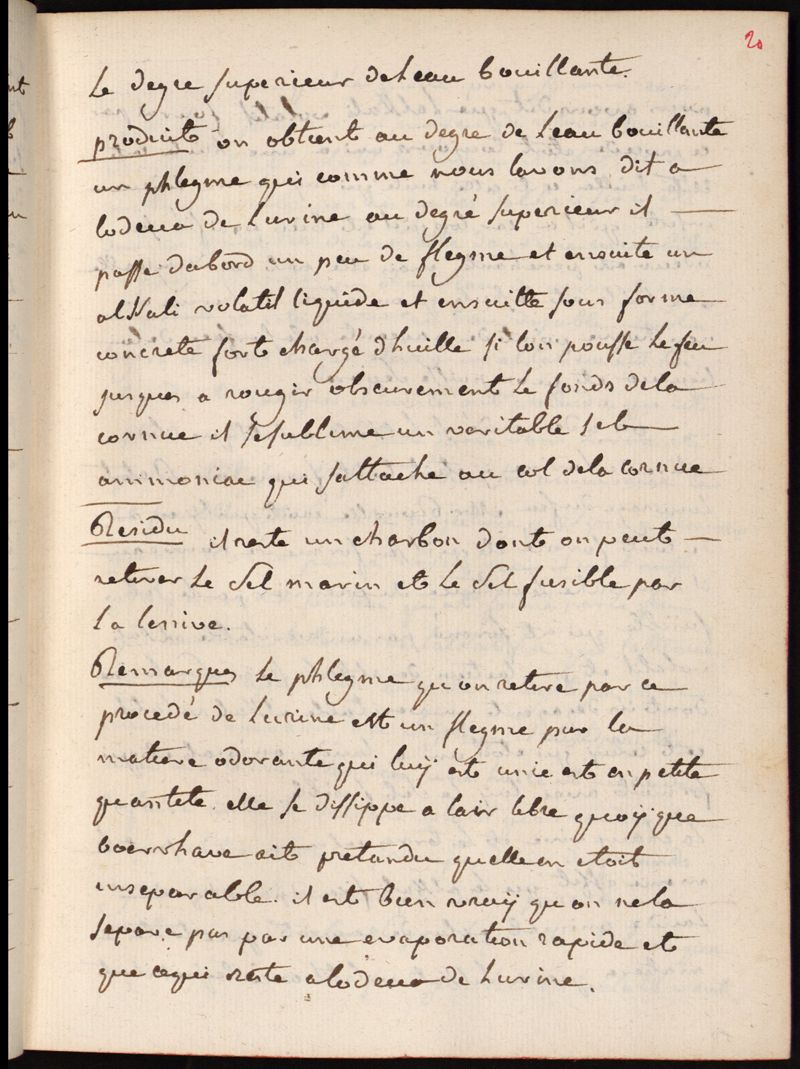 20
Le degre superieur de Leau bouillante.
produit on obtient au degre de Leau bouillante
un phlegme qui comme nous lavons dit a
lodeur de Lurine au degré superieur il
passe dabord un peu de flegme et ensuite un
alkali volatil liquide et ensuitte sous forme
concrete fort chargé dhuille si lon pousse Le feu
jusques a rougir obscurement Le fonds dela
cornue il se sublime un veritable sel
ammoniac qui sattache au col dela cornue
Residu il reste un charbon dont on peut
retirer Le sel marin et Le sel fusible par
La lessive.
Remarques Le phlegme quon retire par ce
procedé de Lurine est un flegme pur la
matiere odorante qui luÿ est unie est en petite
quantité elle se dissippe a lair libre quoÿque
boerrhave ait pretandu quelle en etoit
inseparable. il est bien vraÿ quon nela
separe pas par une evaporation rapide et
que cequi reste a lodeur de Lurine.